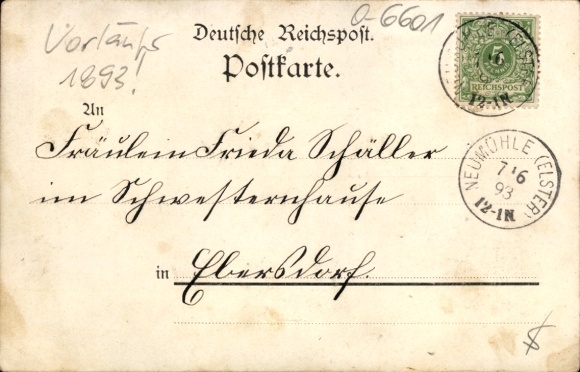 Vorläufer
1893!
O-6601
Deutsche Reichspost.
Postkarte.
5
REICHSPOST
12-1N
NEUMÜHLE (ELSTER)
7 6
93
12-1N
An
Fräulein Frieda Schäller
im Schwesternhause
in Ebersdorf.